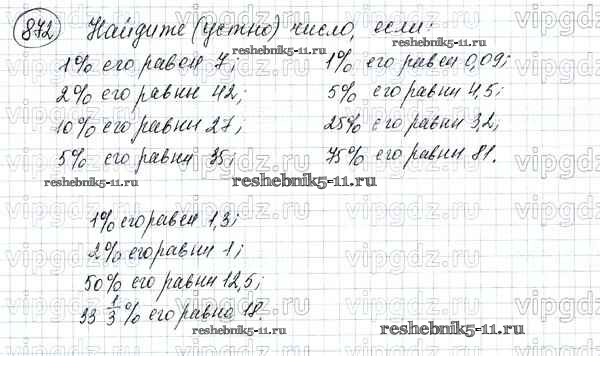 872 Найдите (устно) число, если:
reshebnik5-11.ru
1% его равен 7; 1% его равен 0,09;
2% его равны 42; 5% его равны 4,5;
10% его равны 27; 25% его равны 3,2;
5% его равны 35; 75% его равны 81.
reshebnik5-11.ru reshebnik5-11.ru
1% его равен 1,3;
2% его равны 1;
50% его равны 12,5;
33 1/3 % его равно 18.
reshebnik5-11.ru reshebnik5-11.ru
vipgdz.ru